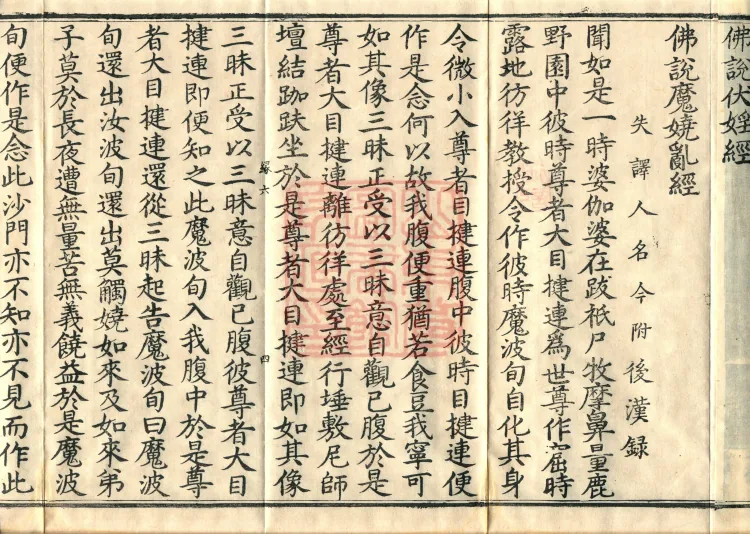 佛說伏婬經
佛說魔嬈亂經
失譯人名今附後漢錄
聞如是一時婆伽婆在跋祇尸牧摩鼻量鹿
野園中彼時尊者大目揵連為世尊作窟時
露地彷徉教授令作彼時魔波旬自化其身
令微小入尊者目揵連腹中彼時目揵連便
作是念何以故我腹便重猶若食豆我寧可
如其像三昧正受以三昧意自觀己腹於是
尊者大目揵連離彷徉處至經行埵敷尼師
壇結跏趺坐於是尊者大目揵連即如其像
三昧正受以三昧意自觀己腹彼尊者大目
揵連即便知之此魔波旬入我腹中於是尊
者大目揵連還從三昧起告魔波旬曰魔波
旬還出汝波旬還出莫觸嬈如來及如來弟
子莫於長夜遭無量苦無義饒益於是魔波
旬便作是念此沙門亦不知亦不見而作此